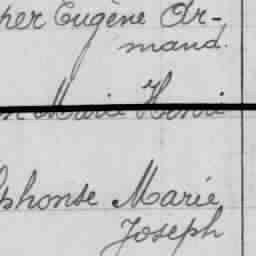 her Eugène Ar-
mand.
Marie Henri
phonse Marie
Joseph